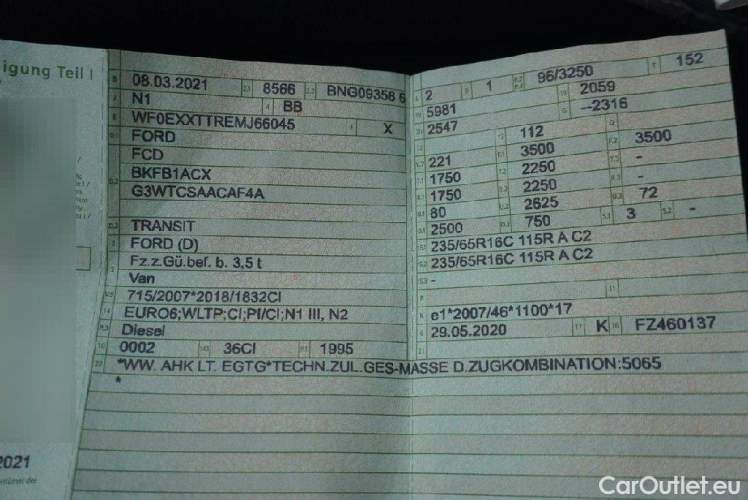 igung Teil I
B 08.03.2021 2.1 8566 2.2 BNG09358 6
J N1 4 BB
E WF0EXXTTREMJ66045 3 X
FORD
FCD
BKFB1ACX
G3WTCSAACAF4A
TRANSIT
FORD (D)
Fz.z.Gü.bef. b. 3,5 t
Van
715/2007*2018/1832CI
EURO6;WLTP;CI;PI/CI;N1 III, N2
Diesel
0002 36CI 1995
*WW. AHK LT. EGTG*TECHN.ZUL.GES-MASSE D.ZUGKOMBINATION:5065
*
2 1 96/3250 152
5981 2059
2547 --2316
112
221 3500 3500
1750 2250 -
1750 2250 -
80 2625 72
2500 750 3 -
235/65R16C 115R A C2
235/65R16C 115R A C2
-
e1*2007/46*1100*17
29.05.2020 17 K 16 FZ460137
2021
CarOutlet.eu